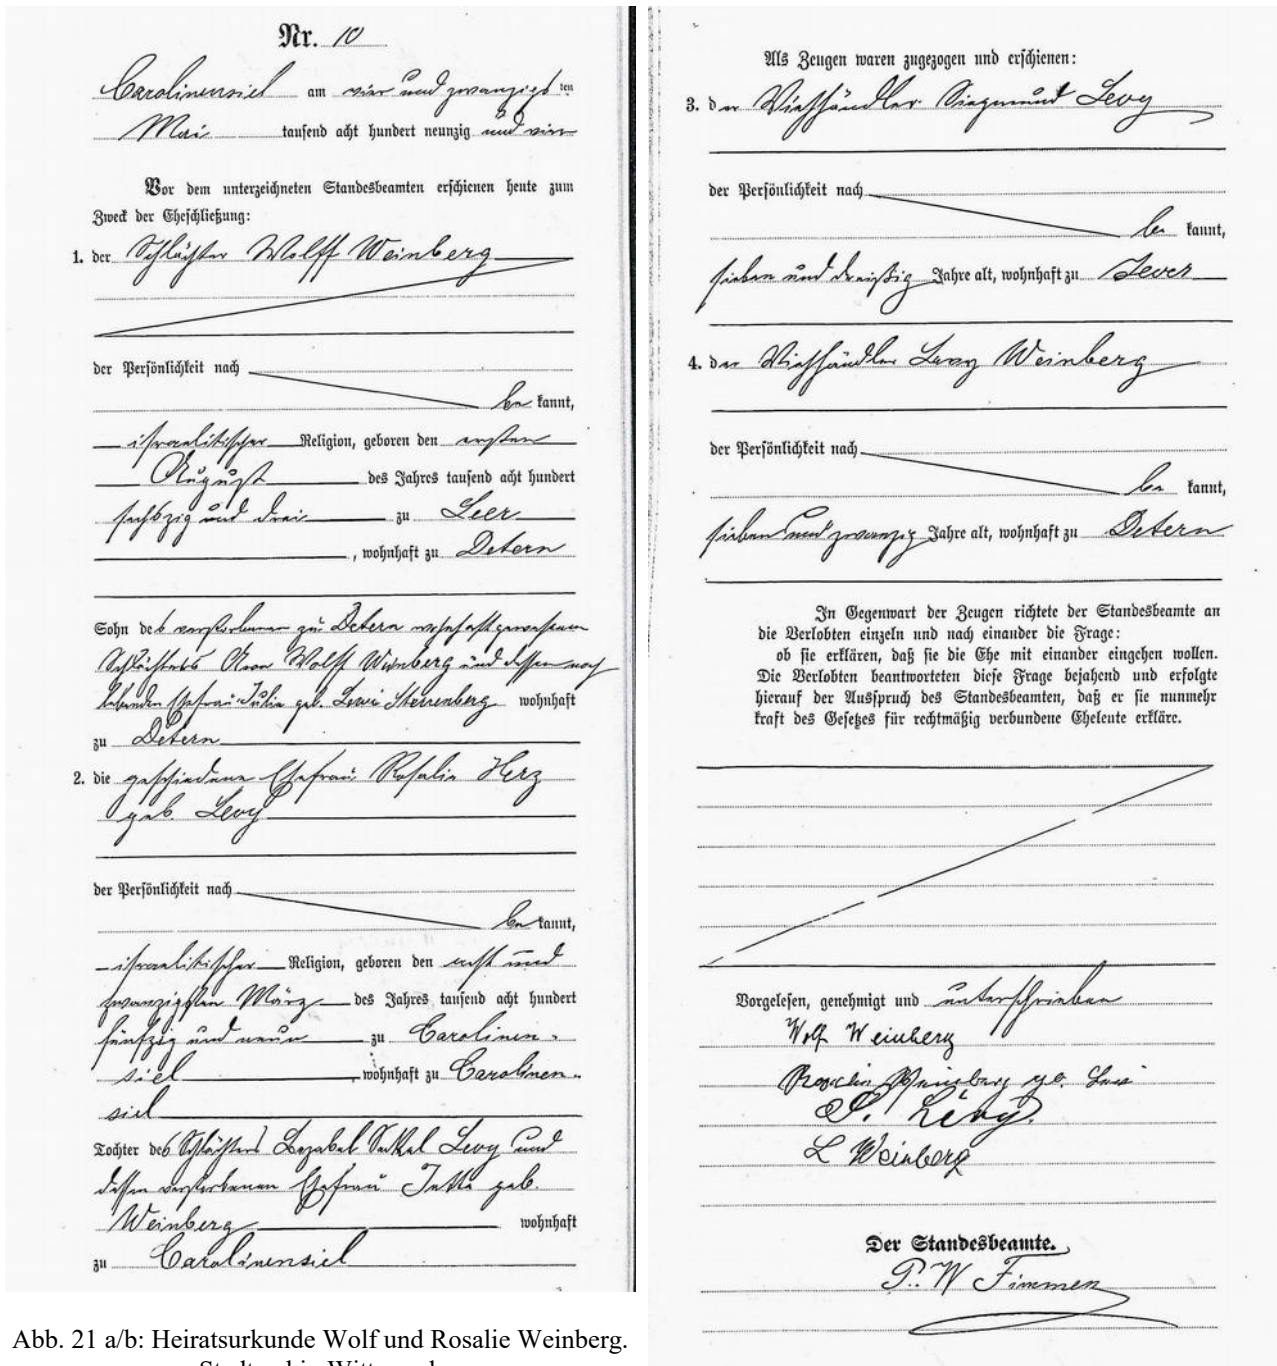 Nr. 10
Carolinensiel am vier und zwanzigsten
Mai tausend acht hundert neunzig und vier
Vor dem unterzeichneten Standesbeamten erschienen heute zum
Zweck der Eheschließung:
1. der Schlächter Wolff Weinberg
der Persönlichkeit nach
bekannt,
israelitischer Religion, geboren den ersten
August des Jahres tausend acht hundert
sechszig und drei zu Leer
, wohnhaft zu Detern
Sohn des verstorbenen zu Detern wohnhaft gewesenen
Schlächters Aron Wolff Weinberg und dessen noch
lebenden Ehefrau Julie geb. Levi Sterrenberg wohnhaft
zu Detern
2. die geschiedene Ehefrau Rosalie Herz
geb. Levy
der Persönlichkeit nach
bekannt,
israelitischer Religion, geboren den acht und
zwanzigsten März des Jahres tausend acht hundert
fünfzig und neun zu Carolinen-
siel, wohnhaft zu Carolinen-
siel
Tochter des Schlächters Bezabel Seckel Levy und
dessen verstorbenen Ehefrau Jette geb.
Weinberg wohnhaft
zu Carolinensiel
Als Zeugen waren zugezogen und erschienen:
3. der Viehhändler Siegmund Levy
der Persönlichkeit nach
bekannt,
sieben und dreißig Jahre alt, wohnhaft zu Jever
4. der Viehhändler Levy Weinberg
der Persönlichkeit nach
bekannt,
sieben und zwanzig Jahre alt, wohnhaft zu Detern
In Gegenwart der Zeugen richtete der Standesbeamte an
die Verlobten einzeln und nach einander die Frage:
ob sie erklären, daß sie die Ehe mit einander eingehen wollen.
Die Verlobten beantworteten diese Frage bejahend und erfolgte
hierauf der Ausspruch des Standesbeamten, daß er sie nunmehr
kraft des Gesetzes für rechtmäßig verbundene Eheleute erkläre.
Vorgelesen, genehmigt und unterschrieben
Wolf Weinberg
Rosalie Weinberg ge. Levi
S. Levy.
L Weinberg
Der Standesbeamte.
P. W Fimmen
Abb. 21 a/b: Heiratsurkunde Wolf und Rosalie Weinberg.